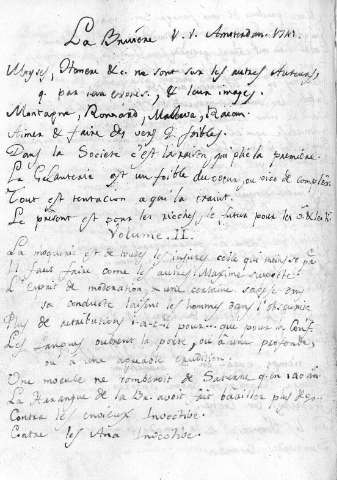 La Bruiere V. 1. Amsterdam. 1741.
Moyse, Homere & c. ne sont sur les autres Auteurs,
q. par leurs images.
Montagne, Ronsard, Malerbe, Racan.
Aimer & faire des vers foibles.
Dans la Societé c'est la raison, qui plie la premiere.
La Galanterie est un foible du cœur, ou vice de complex.
Tout est tentation a qui la craint.
Le présent est pour les riches, le futur pour les
Volume. II.
La moquerie est de toutes les injures celle qui moins se pa
Il faut faire come les autres Maxime suspecte.
L'esprit de moderation, & une certaine sagesse dans
sa conduite laissent les hommes dans l'obscurité
Plus de retributions pour que pour
Les langues ouvrent la porte, ou à une profonde,
ou à une agreable erudition.
Une meule ne tomberoit de Saturne q. en
La Harangue de La Br. avoit fait bâailler plus de
Contre les envieux Invective.
Contre les Ana Invective.